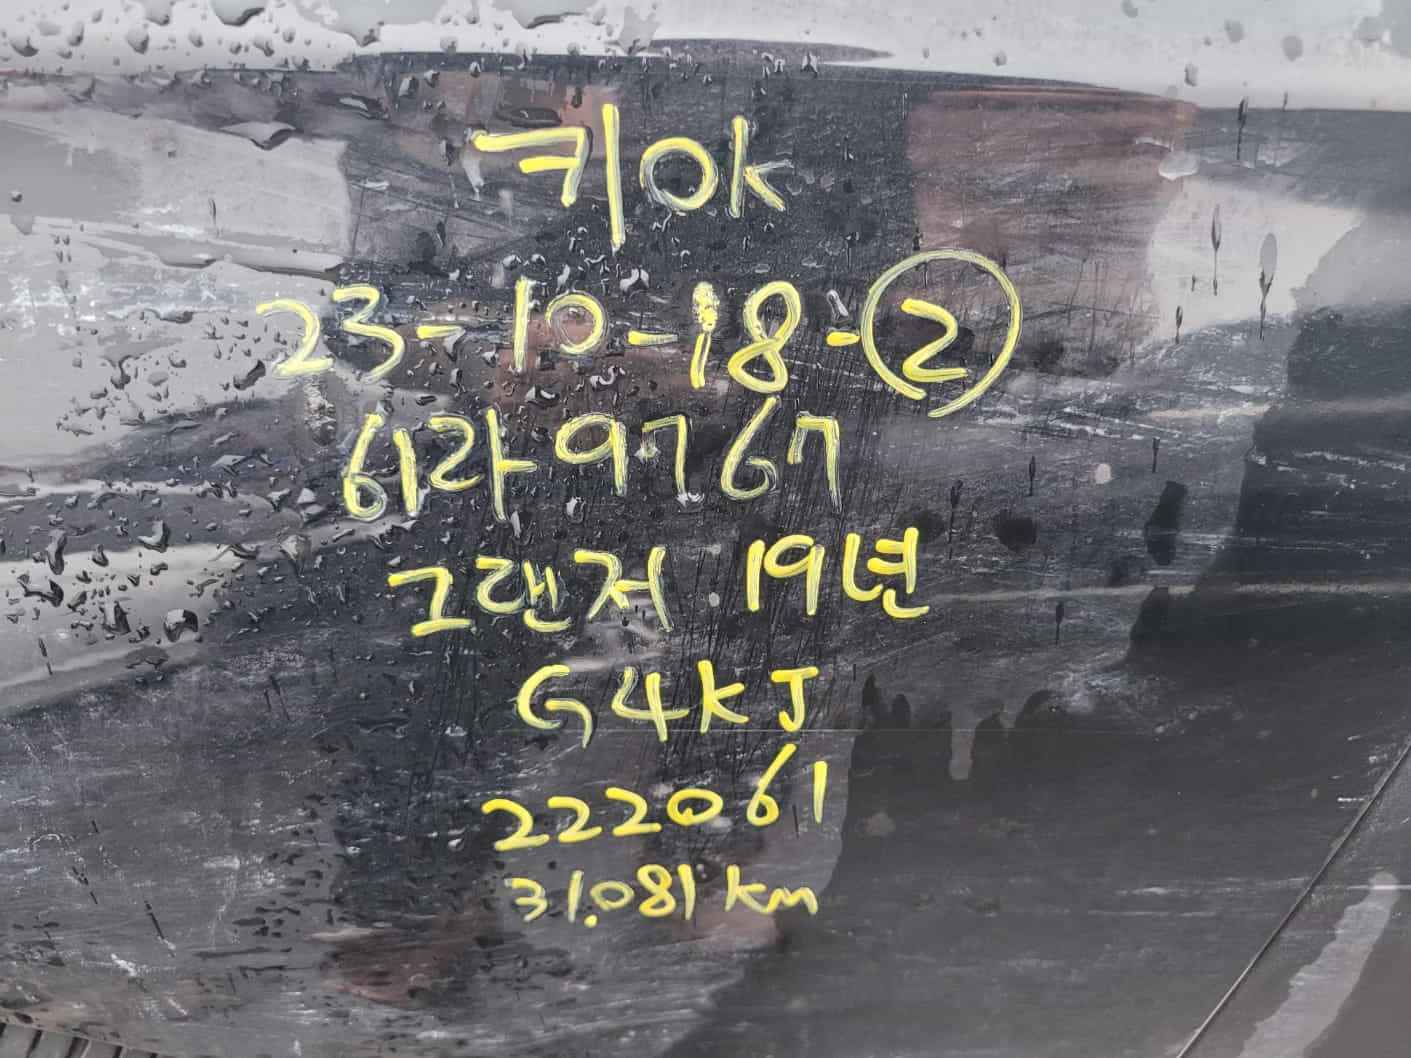 키OK
23-10-18-②
61라9767
그랜저 19년
G4KJ
222061
31.081 km